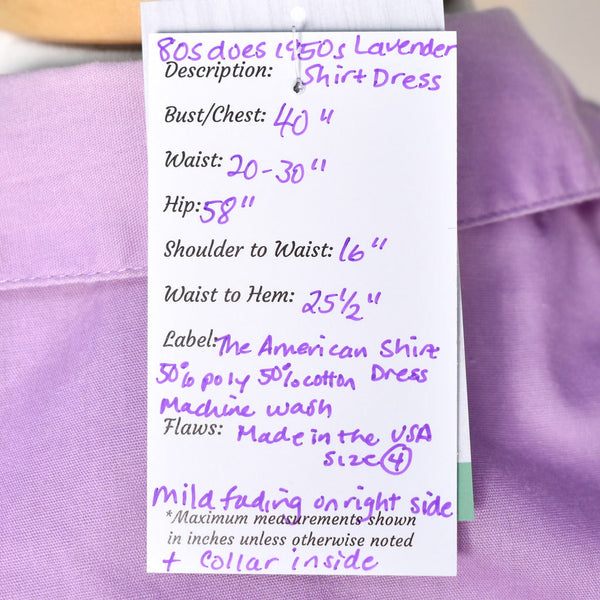 80s does 1950s Lavender
Description: Shirt Dress
Bust/Chest: 40"
Waist: 20-30"
Hip: 58"
Shoulder to Waist: 16"
Waist to Hem: 25 1/2"
Label: The American Shirt
50% poly 50% cotton Dress
Machine wash
Flaws: Made in the USA
Size 4
Mild fading on right side
*Maximum measurements shown
in inches unless otherwise noted
+ collar inside